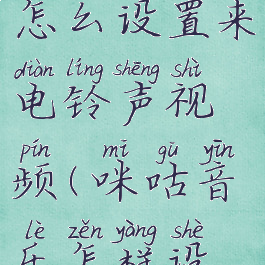 怎么设置来
diàn líng shēng shì
电铃声视
pín mī gū yīn
频(咪咕音
lè zěn yàng shè
乐怎样设